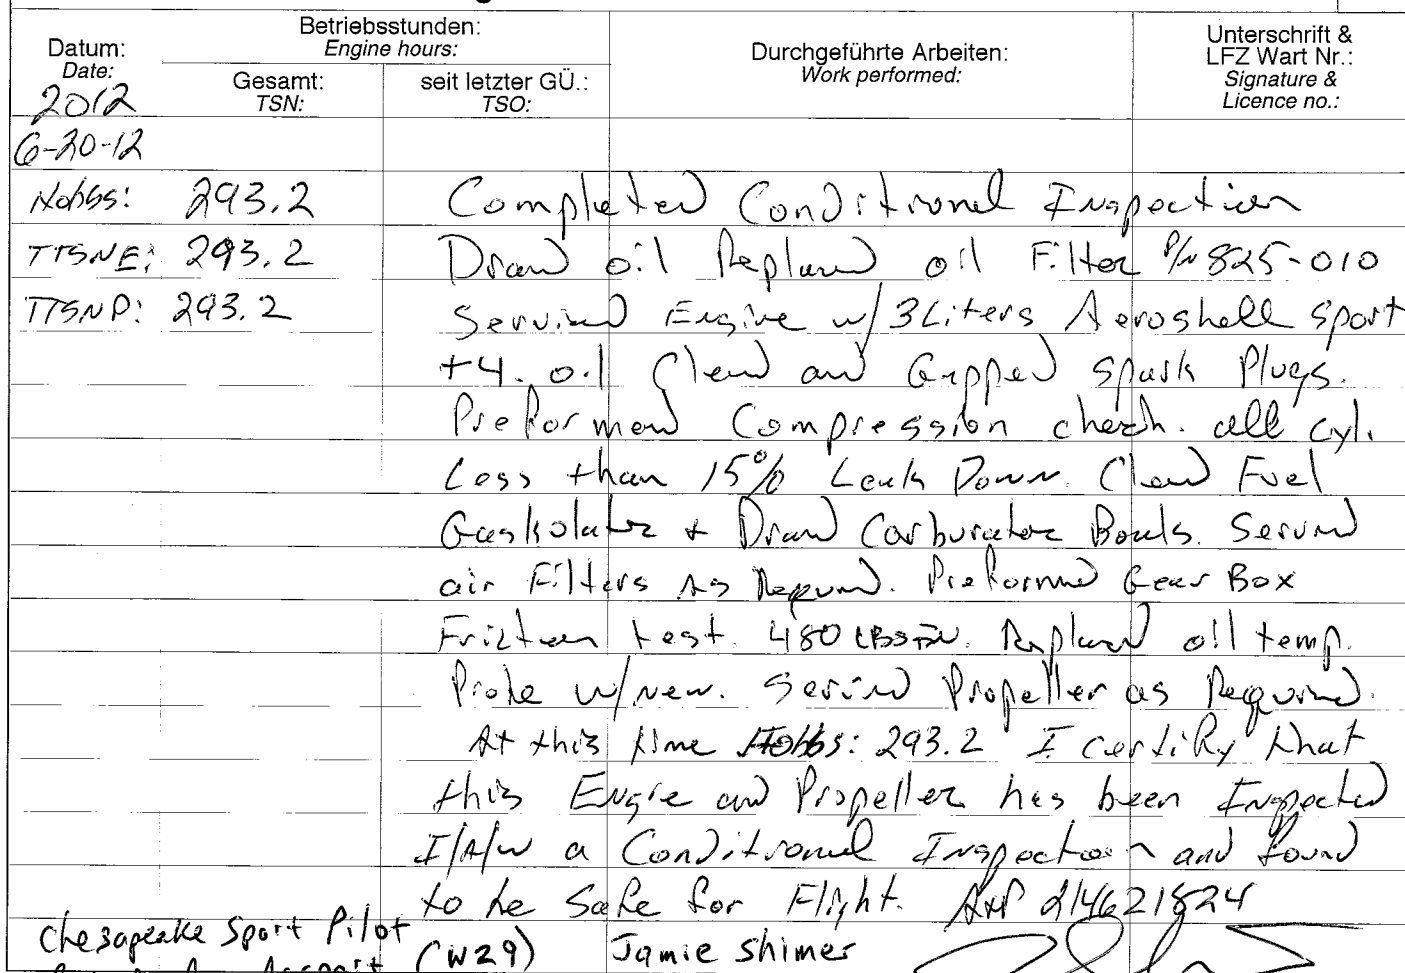 Betriebsstunden:
Engine hours:
Datum:
Date:
Gesamt:
TSN:
seit letzter GÜ.:
TSO:
Durchgeführte Arbeiten:
Work performed:
Unterschrift &
LFZ Wart Nr.:
Signature &
Licence no.:
2012
6-20-12
Hobbs: 293.2 Completed Conditional Inspection
TTSNE: 293.2 Drain oil Replaced oil Filter P/N 825-010
TTSNP: 293.2 Serviced Engine w/ 3 Liters Aeroshell Sport
+4. oil Clean and Gapped Spark Plugs.
Preformed Compression check. all cyl.
Less than 15% Leak Down. Clean Fuel
Gaskolator + Drain Carburator Bowls. Serviced
air Filters As Required. Preformed Gear Box
Friction test. 480 LBSIN. Replaced oil temp.
Probe w/new. Serviced Propeller as Required.
At this time Hobbs: 293.2 I certify that
this Engie and Propeller has been Inspected
I/A/W a Conditional Inspection and found
to be Safe for Flight. A&P 214621824
Chesapeake Sport Pilot
(W29) Jamie Shimer